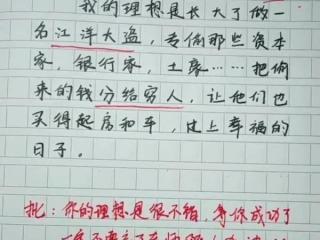 我的理想是长大了做一
名江洋大盗，专偷那些资本
家，银行家，土豪……把偷
来的钱分给穷人，让他们也
买得起房和车，过上幸福的
日子。
批：你的理想是很不错，等你成功了